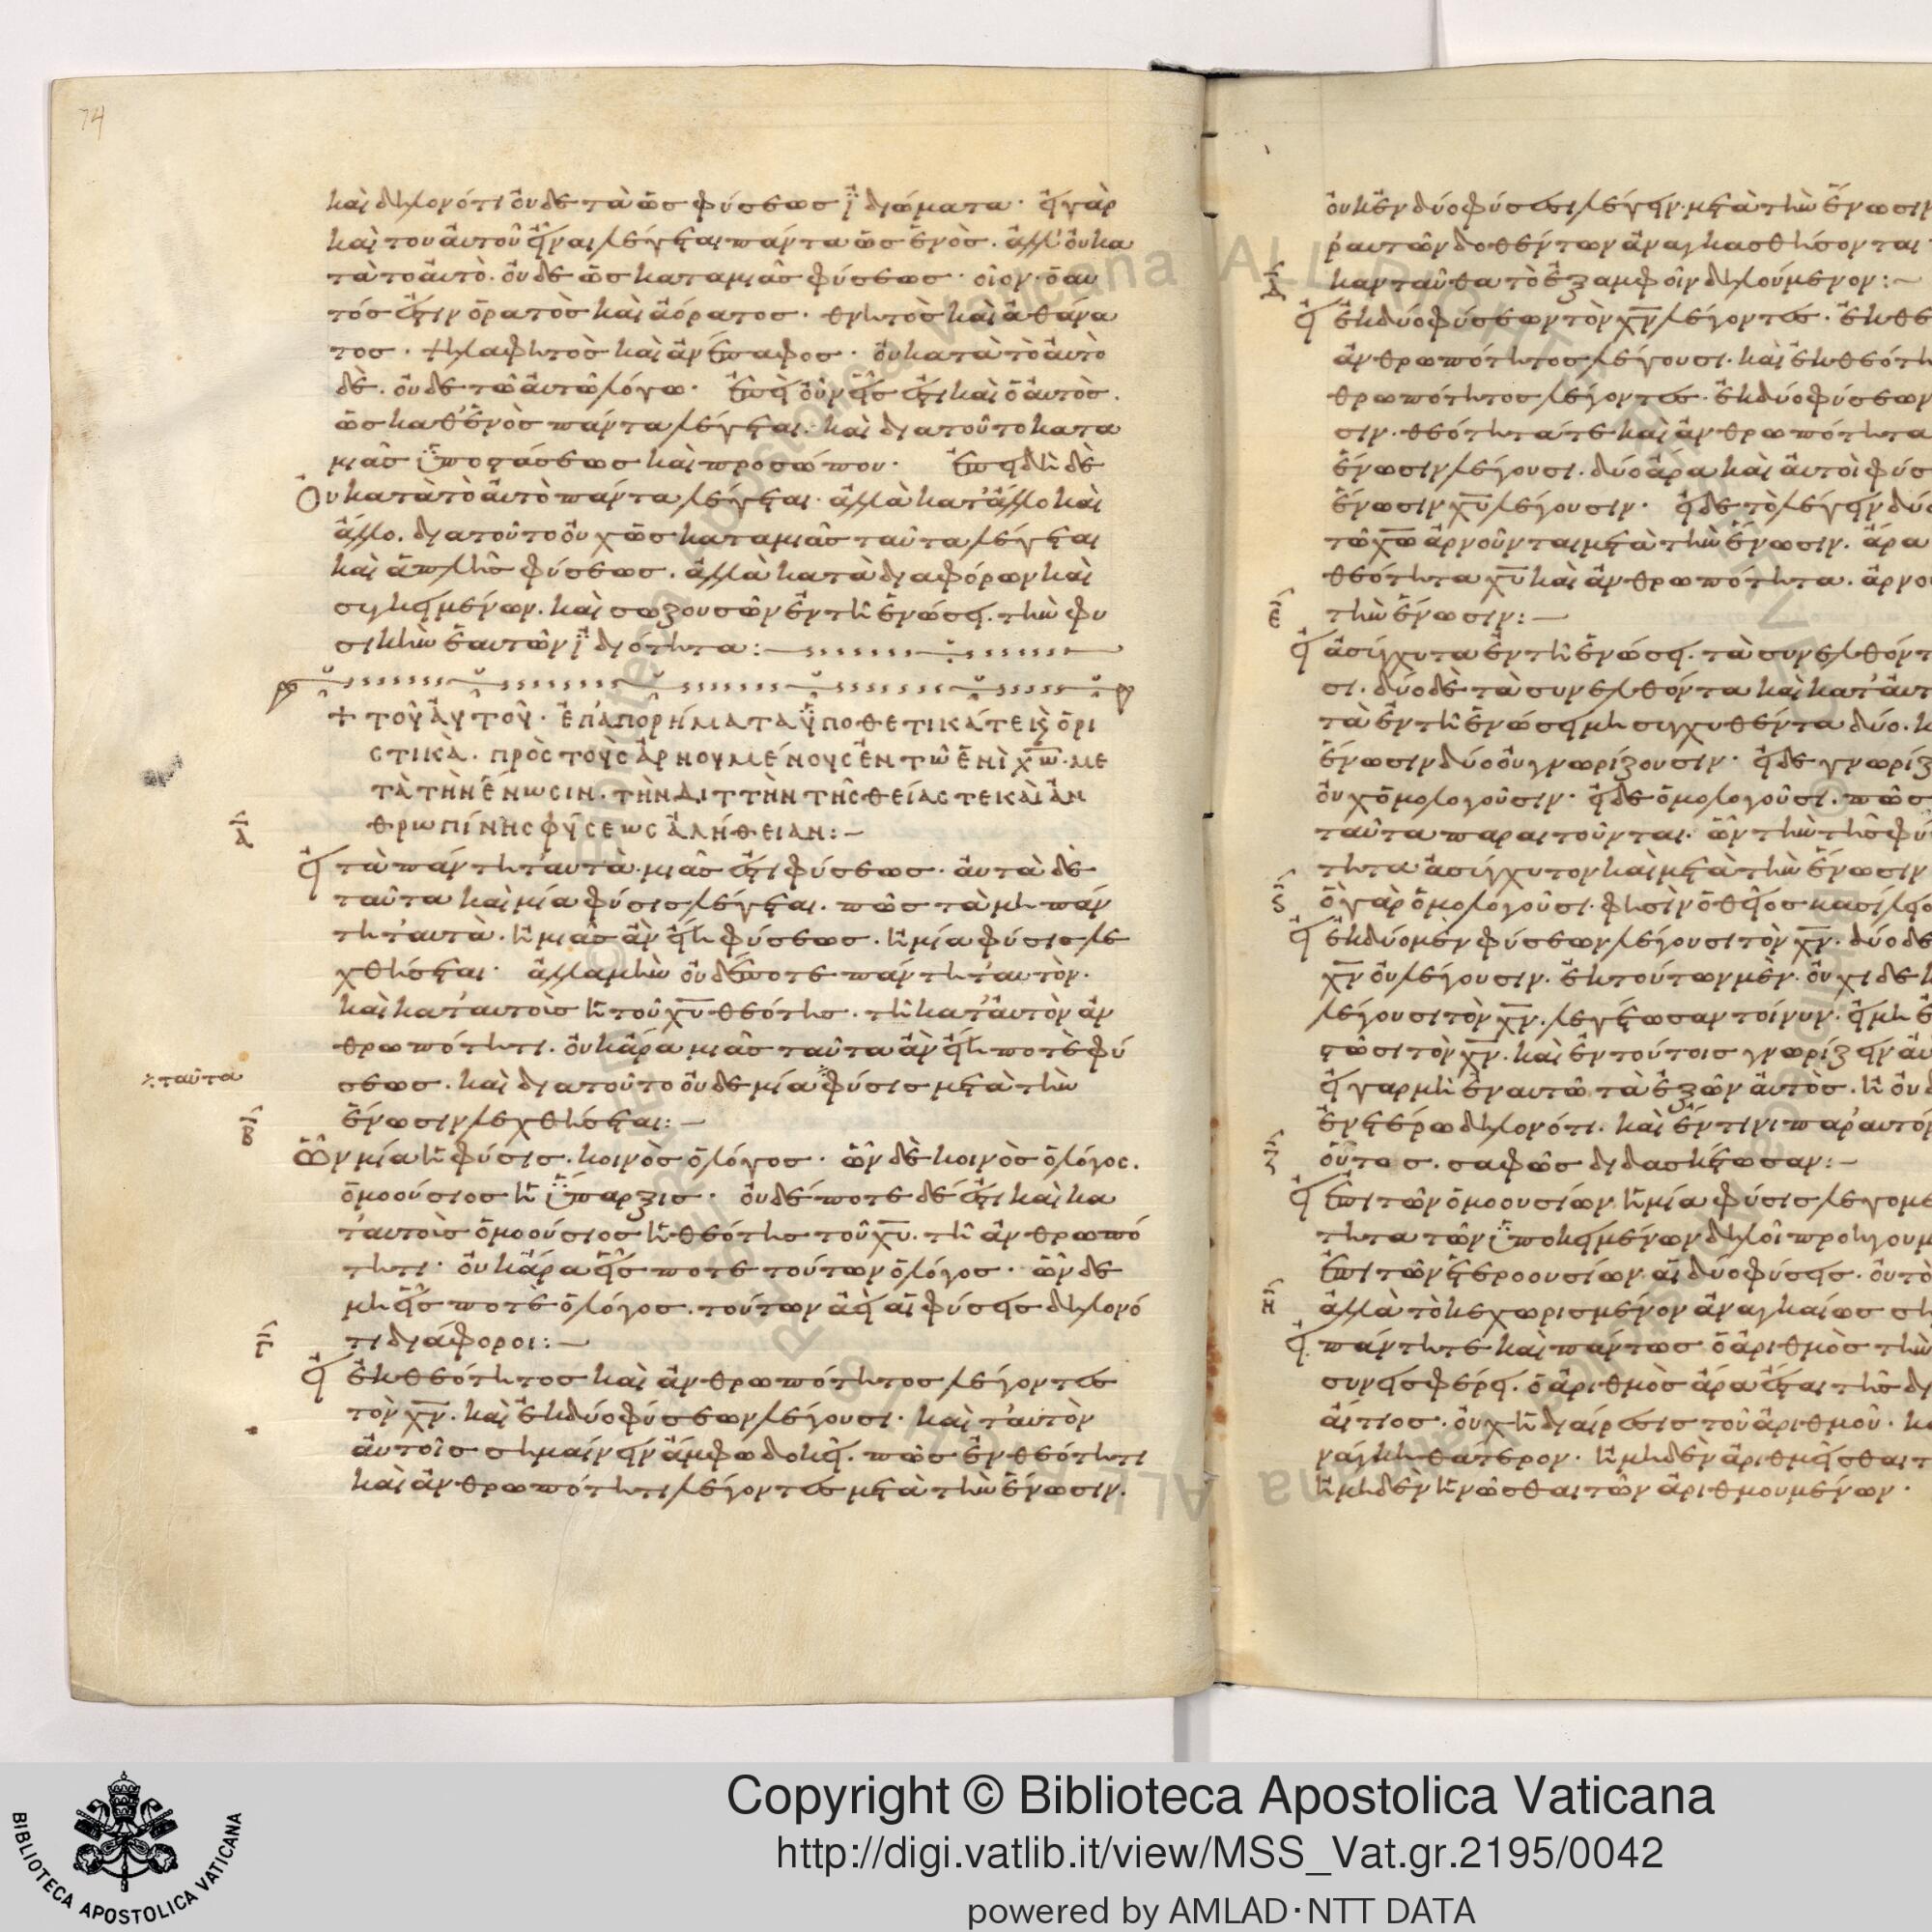 74
καὶ δηλονότι οὐδὲ τὰ ὡς φύσεως ἰδιώματα· εἰ γὰρ
καὶ του αὐτοῦ εἶναι λέγεται πάντα ὡς ἑνὸς. ἀλλ' οὐ κα
τὰ τὸ αὐτὸ. οὐδὲ ὡς κατα μιᾶς φύσεως· οἷον· ὁ αυ
τός ἐστιν ὁρατὸς καὶ ἀόρατος· θνητὸς καὶ ἀθάνα
τος· ψηλαφητὸς καὶ ἀνέπαφος· οὐ κατὰ τὸ αὐτὸ
δὲ. οὐδὲ τῶ αὐτῶ λόγω· ἐπεὶ οὖν εἷς ἐστι καὶ ὁ αὐτὸς.
ὡς καθ' ἑνὸς πάντα λέγεται. καὶ διατοῦτο κατα
μιᾶς ὑποστάσεως καὶ προσώπου· ἐπειδὴ δὲ
Οὐ κατὰ τὸ αὐτὸ πάντα λέγεται. ἀλλὰ κατ' ἄλλο καὶ
ἄλλο. διατοῦτο οὐχ ὡς κατα μιᾶς ταῦτα λέγεται
καὶ ἁπλῆς φύσεως. ἀλλὰ κατὰ διαφόρων καὶ
συγκειμένων. καὶ σωζουσῶν ἐν τῆ ἑνώσει. τὴν φυ
σικὴν ἑαυτῶν ἰδιότητα:
+ τοῦ αὐτοῦ· ἐπαπορήματα ὑποθετικά τε κ(αὶ) ὁρι
στικὰ. πρὸς τοὺς ἀρνουμένους ἐν τῶ ἑνὶ χω· με
τὰ τὴν ἕνωσιν. τὴν διττὴν τῆς θείας τε καὶ ἀν
θρωπίνης φύσεως ἀλήθειαν:–
Α
Εἰ τὰ πάντη ταυτὰ. μιᾶς ἐστι φύσεως· αὐτὰ δὲ
ταῦτα καὶ μία φύσις λέγεται. πῶς τὰ μὴ πάν
τη ταυτὰ. ἢ μιᾶς ἂν εἴη φύσεως. ἢ μία φύσις λε
χθήσεται· ἀλλαμὴν οὐδέποτε πάντη ταυτὸν.
καὶ κατ' αυτοὺς ἡ τοῦ χυ θεότης. τῆ κατ' αὐτὸν ἀν
θρωπότητι. οὐκ ἄρα μιᾶς ταῦτα ἂν εἴη ποτὲ φύ
σεως. καὶ διατοῦτο οὐδὲ μία φύσις μετὰ τὴν
ταῦτα
ἕνωσιν λεχθήσεται:–
Β
Ὧν μία ἡ φύσις. κοινὸς ὁ λόγος· ὧν δὲ κοινὸς ὁ λόγος.
ὁμοούσιος ἡ ὕπαρξις· οὐδέποτε δέ ἐστι καὶ κα
τ' αυτοὺς ὁμοούσιος ἡ θεότης τοῦ χυ. τῆ ἀνθρωπό
τητι· οὐκ ἄρα εἷς ποτε τούτων ὁ λόγος· ὧν δὲ
μὴ εἷς ποτὲ ὁ λόγος. τούτων ἀεὶ αἱ φύσεις δηλονό
τι διάφοροι:–
Γ
Εἰ ἐκ θεότητος καὶ ἀνθρωπότητος λέγοντες
τὸν χν. καὶ ἐκ δύο φύσεων λέγουσι. καὶ ταυτὸν
αὐτοῖς σημαίνειν ἄμφω δοκεῖ. πῶς ἐν θεότητι
καὶ ἀνθρωπότητι λέγοντες μετὰ τὴν ἕνωσιν.
οὐκ ἐν δύο φύσεσι λέγειν. μετὰ τὴν ἕνωσιν
ραυτῶν δοθέντων ἀναγκασθήσονται
κανταῦθα τὸ ἐξ αμφοῖν δηλούμενον:–
Δ
Εἰ ἐκ δύο φύσεων τὸν χν λέγοντες. ἐκ θε
ἀνθρωπότητος λέγουσι. καὶ ἐκ θεότη
θρωπότητος λέγοντες. ἐκ δύο φύσεων
σιν. θεότητα τὲ καὶ ἀνθρωπότητα
ἕνωσιν λέγουσι. δύο ἄρα καὶ αὐτοὶ φύσ
ἕνωσιν χυ λέγουσιν· εἰ δὲ τὸ λέγειν δύο
τῶ χω ἀρνοῦνται μετὰ τὴν ἕνωσιν. ἄρα
θεότητα χυ καὶ ἀνθρωπότητα. ἀρνο
τὴν ἕνωσιν:–
Ε
Εἰ ἀσύγχυτα ἐν τῆ ἑνώσει. τὰ συνελθόντ
σι. δύο δὲ τὰ συνελθόντα καὶ κατ' αὐτ
τὰ ἐν τῆ ἑνώσει μὴ συγχυθέντα δύο. κ
ἕνωσιν δύο οὐ γνωρίζουσιν· εἰ δὲ γνωρίζ
οὐχ ὁμολογοῦσιν· εἰ δὲ ὁμολογοῦσι. πῶς
ταῦτα παραιτοῦνται· ὧν τὴν τῆς φύ
τητα ἀσύγχυτον καὶ μετὰ τὴν ἕνωσιν
ὃ γὰρ ὁμολογοῦσι. φησὶν ὁ θεῖος βασίλειο
ς
Εἰ ἐκ δύο μὲν φύσεων λέγουσι τὸν χν. δύο δὲ
χν οὐ λέγουσιν. ἐκ τούτων μὲν. οὐχὶ δὲ κ
λέγουσι τὸν χν. λεγέτωσαν τοίνυν. εἰ μὴ ἐ
τῶσι τὸν χν. καὶ ἐν τούτοις γνωρίζειν αὐ
εἰ γαρ μὴ ἐν αυτῶ τὰ ἐξ ὧν αὐτὸς. ἢ οὐδ
ἐν ετέρω δηλονότι. καὶ ἐν τινι παρ' αυτόν
οὗτος. σαφῶς διδασκέτωσαν:–
Ζ
Εἰ ἐπι τῶν ὁμοουσίων ἡ μία φύσις λεγομέ
τητα τῶν ὑποκειμένων δηλοῖ προηγουμ
ἐπι τῶν ετεροουσίων αἱ δύο φύσεις. οὐ τὸ
ἀλλὰ τὸ κεχωρισμένον ἀναγκαίως ση
Η
Εἰ πάντη τε καὶ πάντως ὁ ἀριθμὸς τὴν
συνεισφέρει. ὁ ἀριθμὸς ἄρα ἔσται τῆς δι
αἴτιος. οὐχ ἡ διαίρεσις τοῦ ἀριθμοῦ· κα
νάγκη θάτερον· ἢ μηδὲν ἀριθμεῖσθαι τ
ἢ μηδὲν ἡνῶσθαι τῶν ἀριθμουμένων·
BIBLIOTECA APOSTOLICA VATICANA
Copyright © Biblioteca Apostolica Vaticana
http://digi.vatlib.it/view/MSS_Vat.gr.2195/0042
powered by AMLAD·NTT DATA